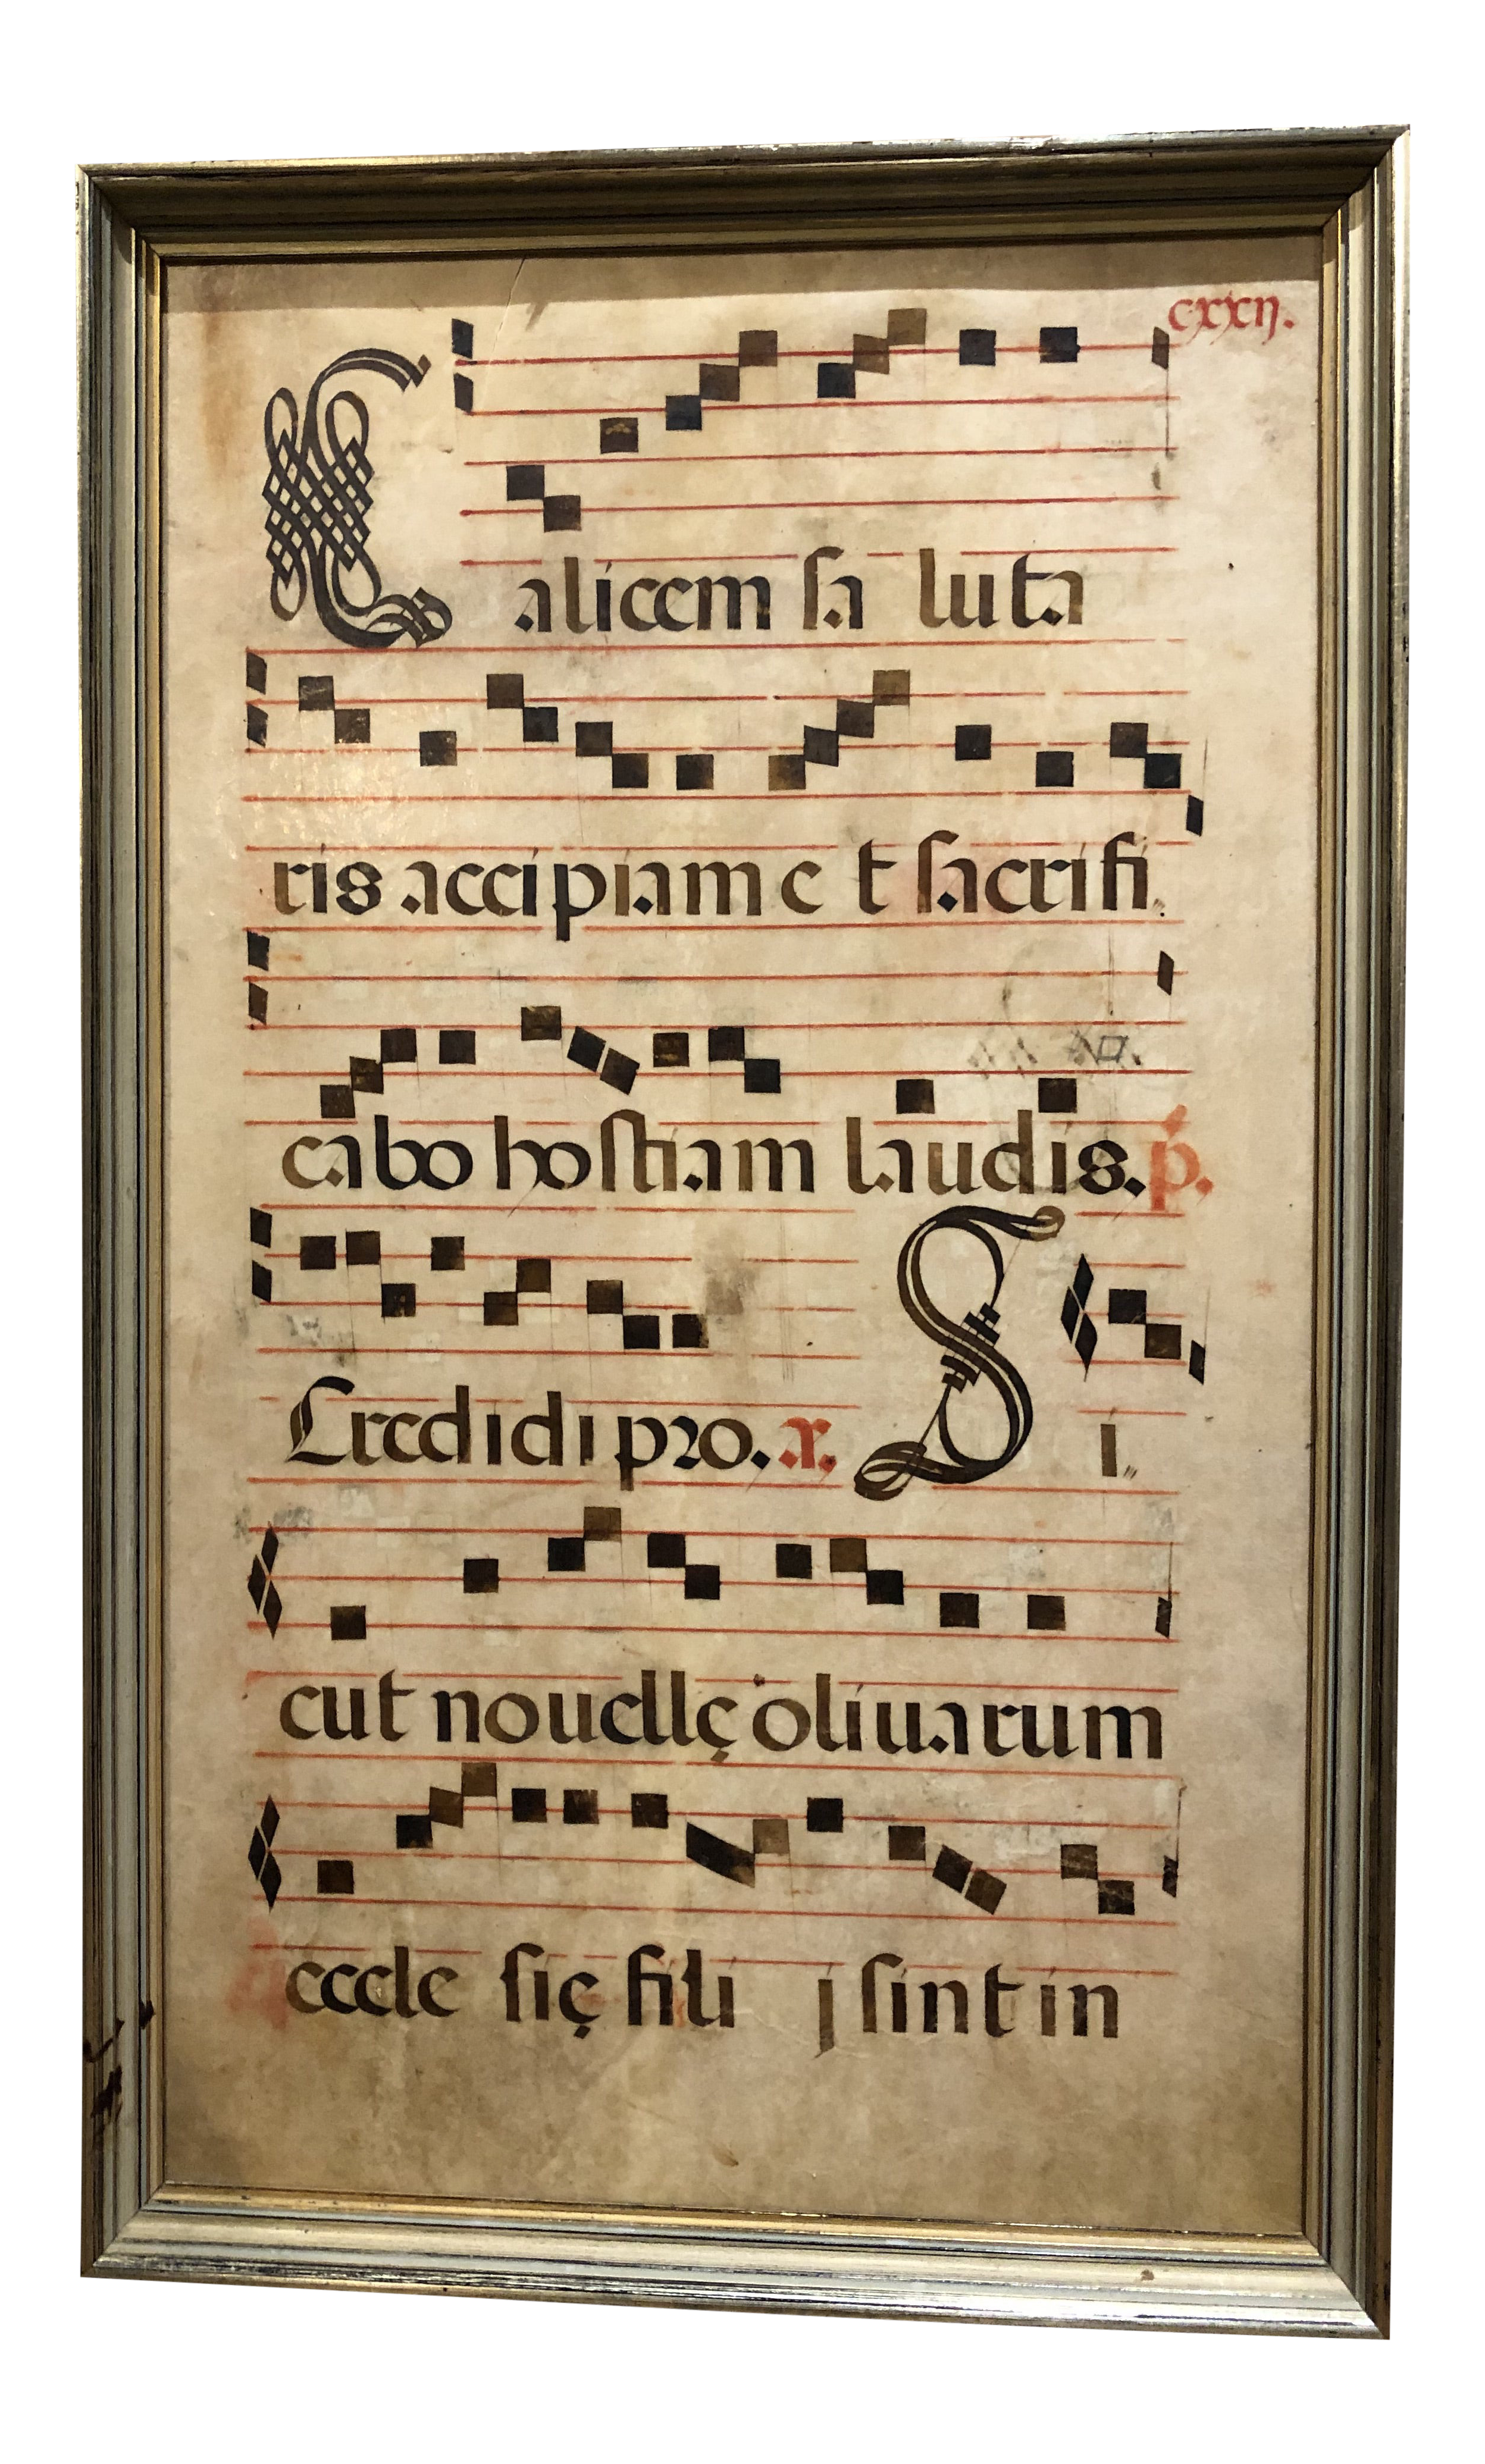 cxxij.
Calicem ſa luta
ris accipiam e t ſacrifi„
cabo hoſtiam laudis. p.
Credidi pro. x. S i„
cut nouellę oliuarum
eccle ſię fili j ſint in